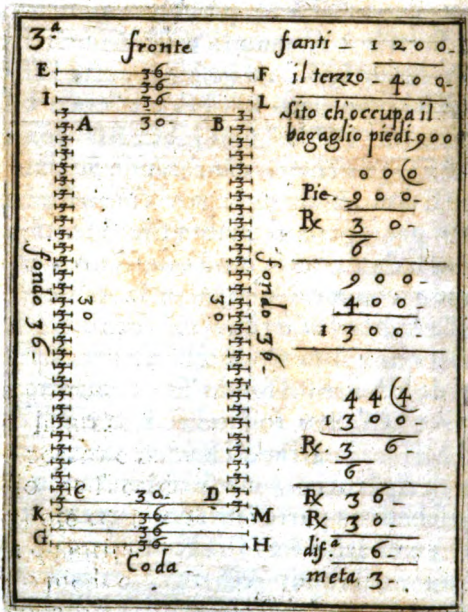 3ª
fronte
E 36 F
36
I 36 L
A 30- B
fondo 36-
30
30
fondo 36-
C 30- D
K 36 M
36
G 36 H
Coda
fanti - 1200-
il terzzo - 400-
Sito ch'occupa il
bagaglio piedi. 900
00(0
Pie. 900-
R 3 0-
6
900-
400-
1300-
44(4
1300-
R. 3 6-
6
R 36-
R 30-
dif.ª 6-
meta 3-